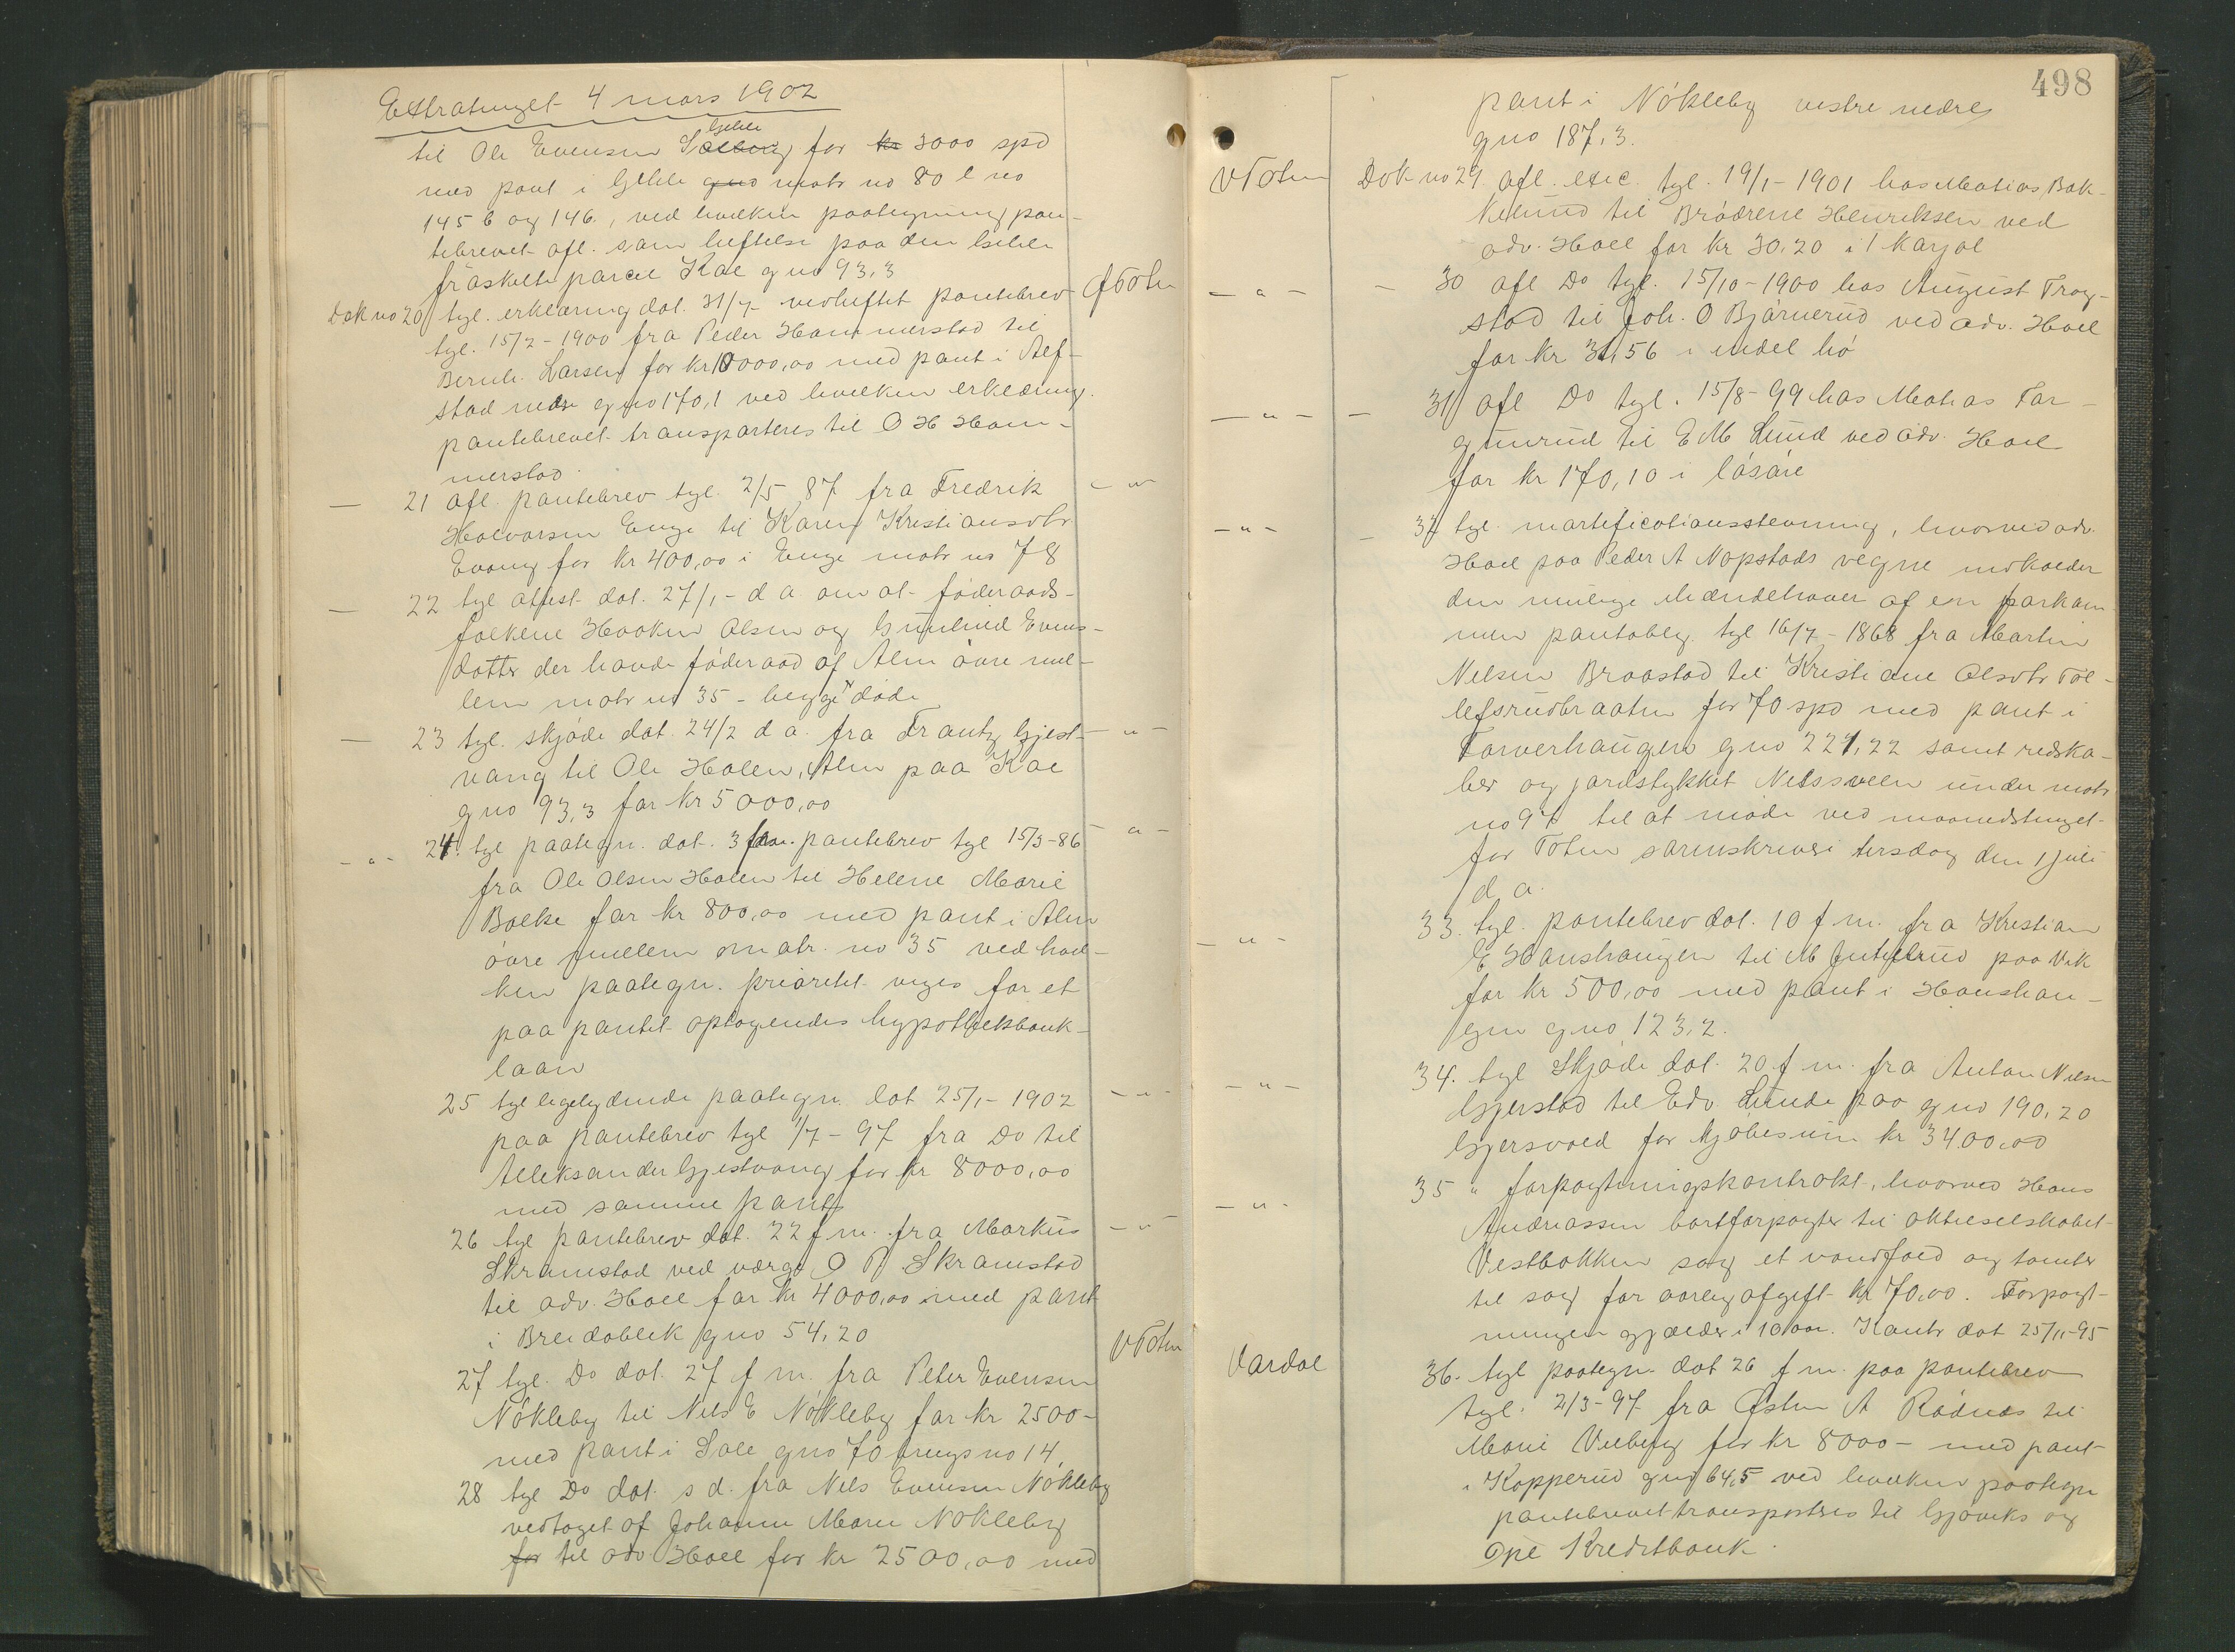 Extratinget 4 mars 1902
til Ole Evensen Gihle for kr 3000 spd
med pant i Gihle gno matr no 80 l no
145 b og 146, ved hvilken paategning pan-
tebrevet afl. som heftelse paa den Gihle
fraskilte parcel Kal gno 93,3
Dok no 20 tgl. erklæring dat. 31/7 vedheftet pantebrev Ø Toten
tgl. 15/2 - 1900 fra Peder Hammerstad til
Bernh. Larsen for kr 10000,00 med pant i Alf-
stad nedre gno 170,1 ved hvilken erklæring
pantebrevet transporteres til O H Ham-
merstad.
— 21 afl. pantebrev tgl. 2/5 87 fra Fredrik - " -
Halvorsen Enge til Karen Kristiansdtr
Evang for kr 400,00 i Enge matr no 78
— 22 tgl attest dat. 27/1 - d a om at føderaads-
folkene Haaken Olsen og Gunhild Evens-
datter der havde føderaad af Alm øvre mel-
lem matr no 35 - begge døde
— 23 tgl. skjøde dat. 24/2 d a. fra Frantz Gjest- - " -
vang til Ole Holen, Alm paa Kal
gno 93,3 for kr 5000,00
- " - 24. tgl paategn. dat. 3 pantebrev tgl 15/3-86 - " -
fra Ole Olsen Holen til Helene Marie
Bolke for kr 800,00 med pant i Alm
øvre mellem matr. no 35 ved hvil-
ken paategn. prioritet viges for et
paa pantet optagendes hypothekbank-
laan
25 tgl ligelydende paategn. dat 25/1 - 1902 - " -
paa pantebrev tgl 1/7 - 97 fra Do til
Aleksander Gjestvang for kr 8000,00
med samme pant
26 tgl pantebrev dat. 22 f m. fra Markus - " -
Skramstad ved værge O P Skramstad
til adv. Hoel for kr 4000,00 med pant
i Breidablik gno 54,20
27 tgl. Do dat. 27 f m. fra Peter Evensen V Toten
Nøkleby til Nils E Nøkleby for kr 2500 -
med pant i Sole gno 70 brugsno 14,
28 tgl Do dat. s d. fra Nils Evensen Nøkleby
vedtaget af Johanne Marie Nøkleby
for til adv Hoel for kr 2500,00 med
498
pant i Nøkleby vestre nedre
gno 187,3.
V Toten Dok no 29 afl. exec. tgl. 19/1 - 1901 hos Matias Bak-
kelund til Brødrene Henriksen ved
adv. Hoel for kr 30,20 i 1 karjol
- " - - 30 afl Do tgl. 15/10 - 1900 hos August Trog-
stad til Joh. O Bjørnerud ved adv. Hoel
for kr 31,56 i endel hø
- " - - 31 afl Do tgl. 15/8 - 99 hos Matias Far-
gunrud til E M Lund ved adv. Hoel
for kr 170,10 i løsøre
- " - - 32 tgl. mortifications­stevning, hvorved adv.
Hoel paa Peder A Nopstads vegne indkalder
den mulige ihændehaver af en forkom-
men pantobl. tgl 16/7 - 1868 fra Martin
Nilsen Braastad til Kristiane Olsdtr Tol-
lefsrudbraaten for 70 spd med pant i
Farverhaugen gno 221,22 samt redska-
ber og jordstykket Nilssveen under matr
no 97 til at møde ved maanedstinget
for Toten sorenskriveri tirsdag den 1 juli
d a.
- " - 33. tgl. pantebrev dat. 10 f m. fra Kristian
E Hanshaugen til M paa Vik
for kr 500,00 med pant i Hanshau-
gen gno 123,2.
- " - 34. tgl Skjøde dat. 20 f m. fra Anton Nilsen
Gjerstad til Edv. Lunde paa gno 190,20
Gjersvold for kjøbesum kr 3400,00
- " - 35 " forpagtningskontrakt, hvorved Hans
Andreassen bortforpagter til aktieselskabet
Vestbakken sag et vandfald og tomter
til sag for aarlig afgift kr 70,00. Forpagt-
ningen gjælder i 10 aar. Kontr dat 25/11-95
Vardal 36. tgl paategn dat 26 f m. paa pantebrev
tgl. 2/3 - 97 fra Østen A Rødnes til
Marie Vieberg for kr 8000 - med pant
i Kopperud gno 64,5 ved hvilken paategn
pantebrevet transporteres til Gjøviks og
Opl Kreditbank.